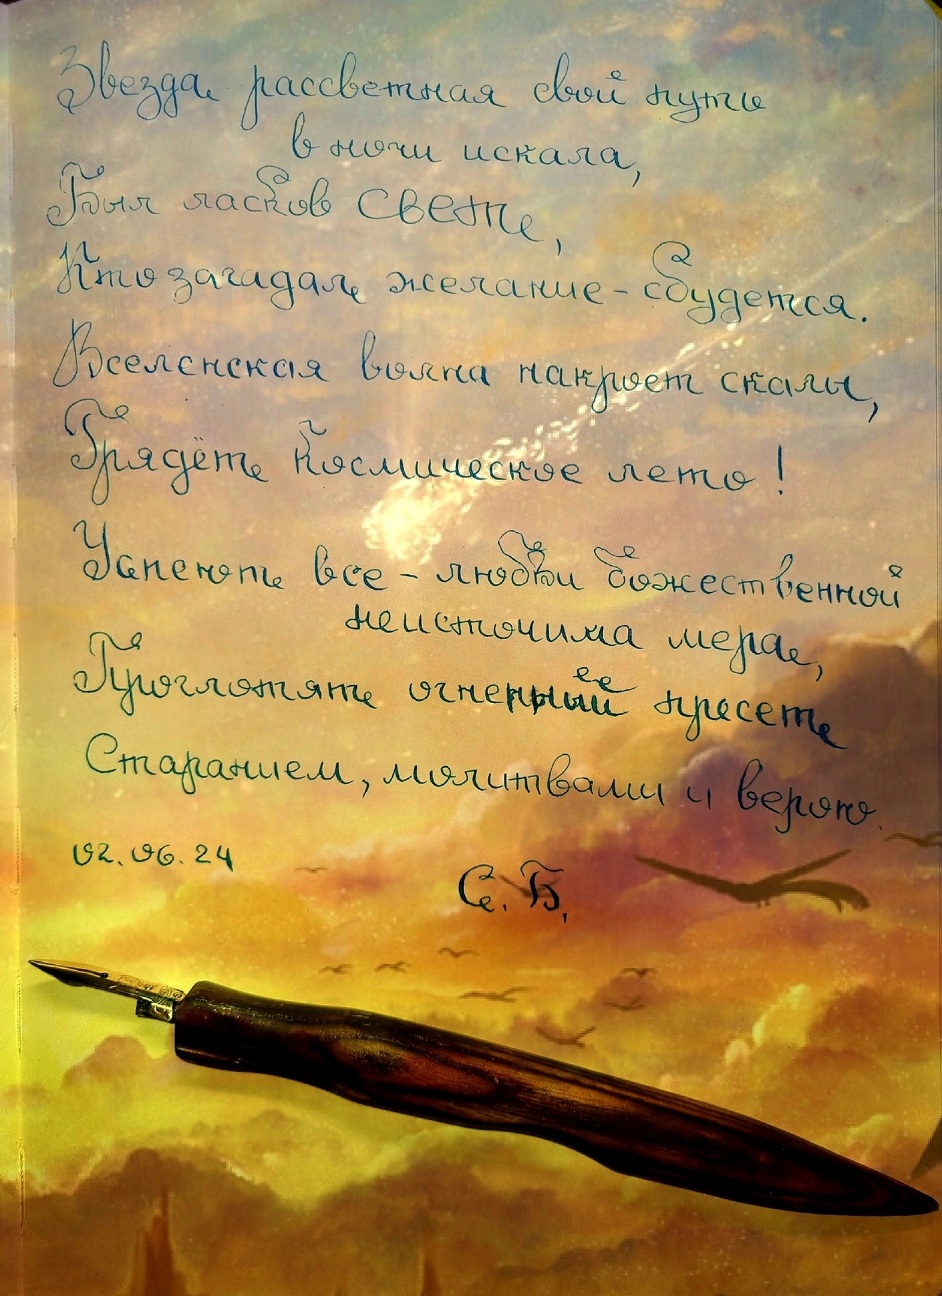 Звезда рассветная свой путь
в ночи искала,
Был ласков Свет,
Кто загадал желание - сбудется.
Вселенская волна накроет скалы,
Грядёт Космическое лето!
Успеют все - любви божественной
неисточима мера,
Проглотят
Старанием, молитвами и верою.
02.06.24
С. Б.